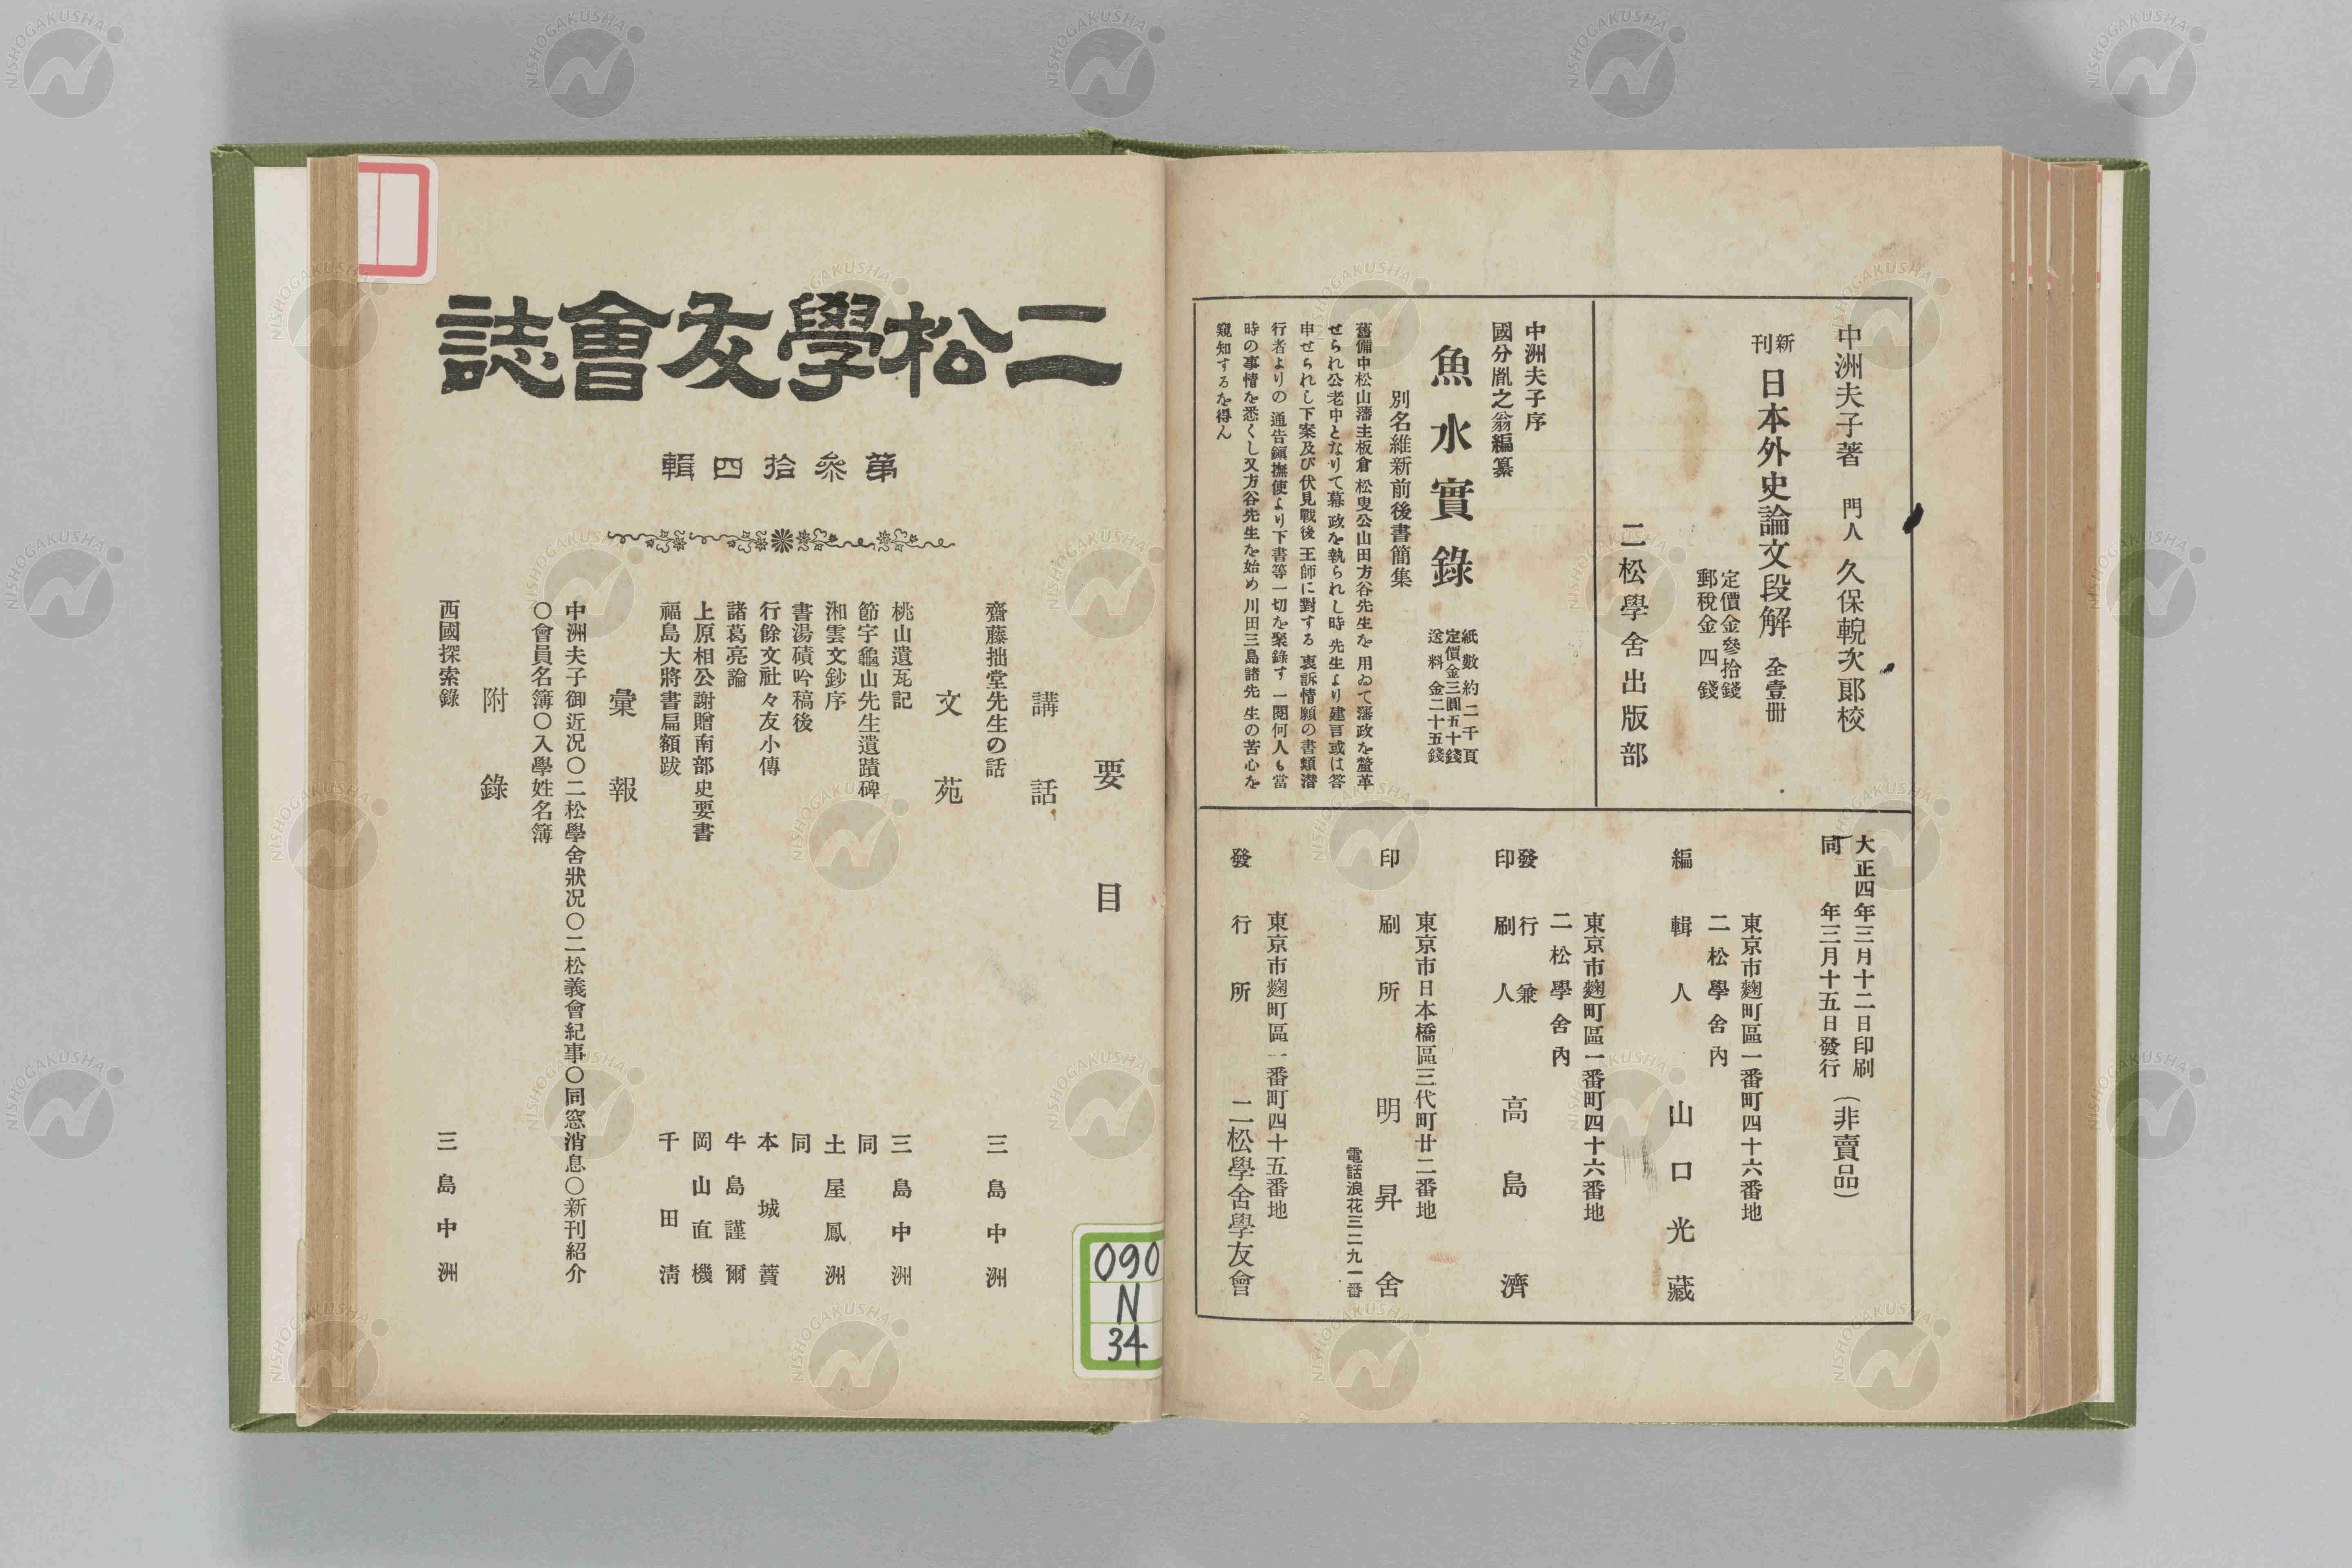 中洲夫子著　門人　久保輗次郞校
新刊　日本外史論文段解　全壹册
定價金參拾錢
郵稅金四錢
二松學舍出版部
中洲夫子序
國分胤之翁編纂
魚水實錄
紙數約二千頁
定價金三圓五十錢
送料金二十五錢
別名維新前後書簡集
舊備中松山藩主板倉松叟公山田方谷先生を用ゐて藩政を釐革
せられ公老中となりて幕政を執られし時先生より建言或は答
申せられし下案及び伏見戰後王師に對する哀訴情願の書類潜
行者よりの通告鎭撫使より下書等一切を聚錄す一閱何人も當
時の事情を悉くし又方谷先生を始め川田三島諸先生の苦心を
窺知するを得ん
大正四年三月十二日印刷
同　年三月十五日發行　（非賣品）
東京市麴町區一番町四十六番地
二松學舍內
編輯人　山口光藏
東京市麴町區一番町四十六番地
二松學舍內
發行兼
印刷人　高島濟
東京市日本橋區三代町廿二番地
印刷所　明昇舍
電話浪花三二九一番
東京市麴町區一番町四十五番地
發行所　二松學舍學友會
二松學友會誌
第參拾四輯
要目
講話
齋藤拙堂先生の話　三島中洲
文苑
桃山遺瓦記　三島中洲
節宇龜山先生遺蹟碑　同
湘雲文鈔序　土屋鳳洲
書湯磧吟稿後　同
行餘文社々友小傳　本城蕡
諸葛亮論　牛島謹爾
上原相公謝贈南部史要書　岡山直機
福島大將書扁額跋　千田淸
彙報
中洲夫子御近況〇二松學舍狀況〇二松義會紀事〇同窓消息〇新刊紹介
〇會員名簿〇入學姓名簿
附錄
西國探索錄　三島中洲
090
N
34
NISHOGAKUSHA